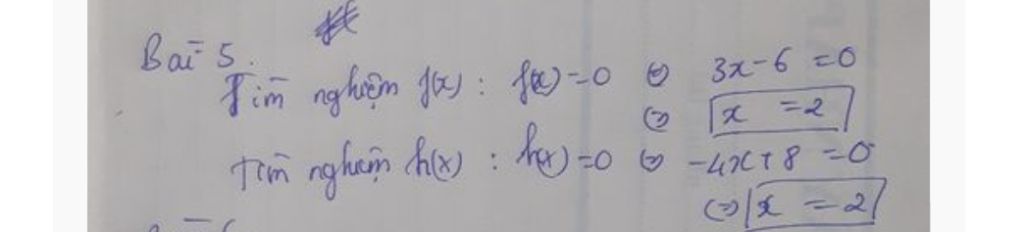 Bài 5.
Tìm nghiệm f(x) : f(x)=0 ⇔ 3x-6 =0
⇔ x =2
Tìm nghiệm h(x) : h(x)=0 ⇔ -4x+8 =0
⇔ x =2